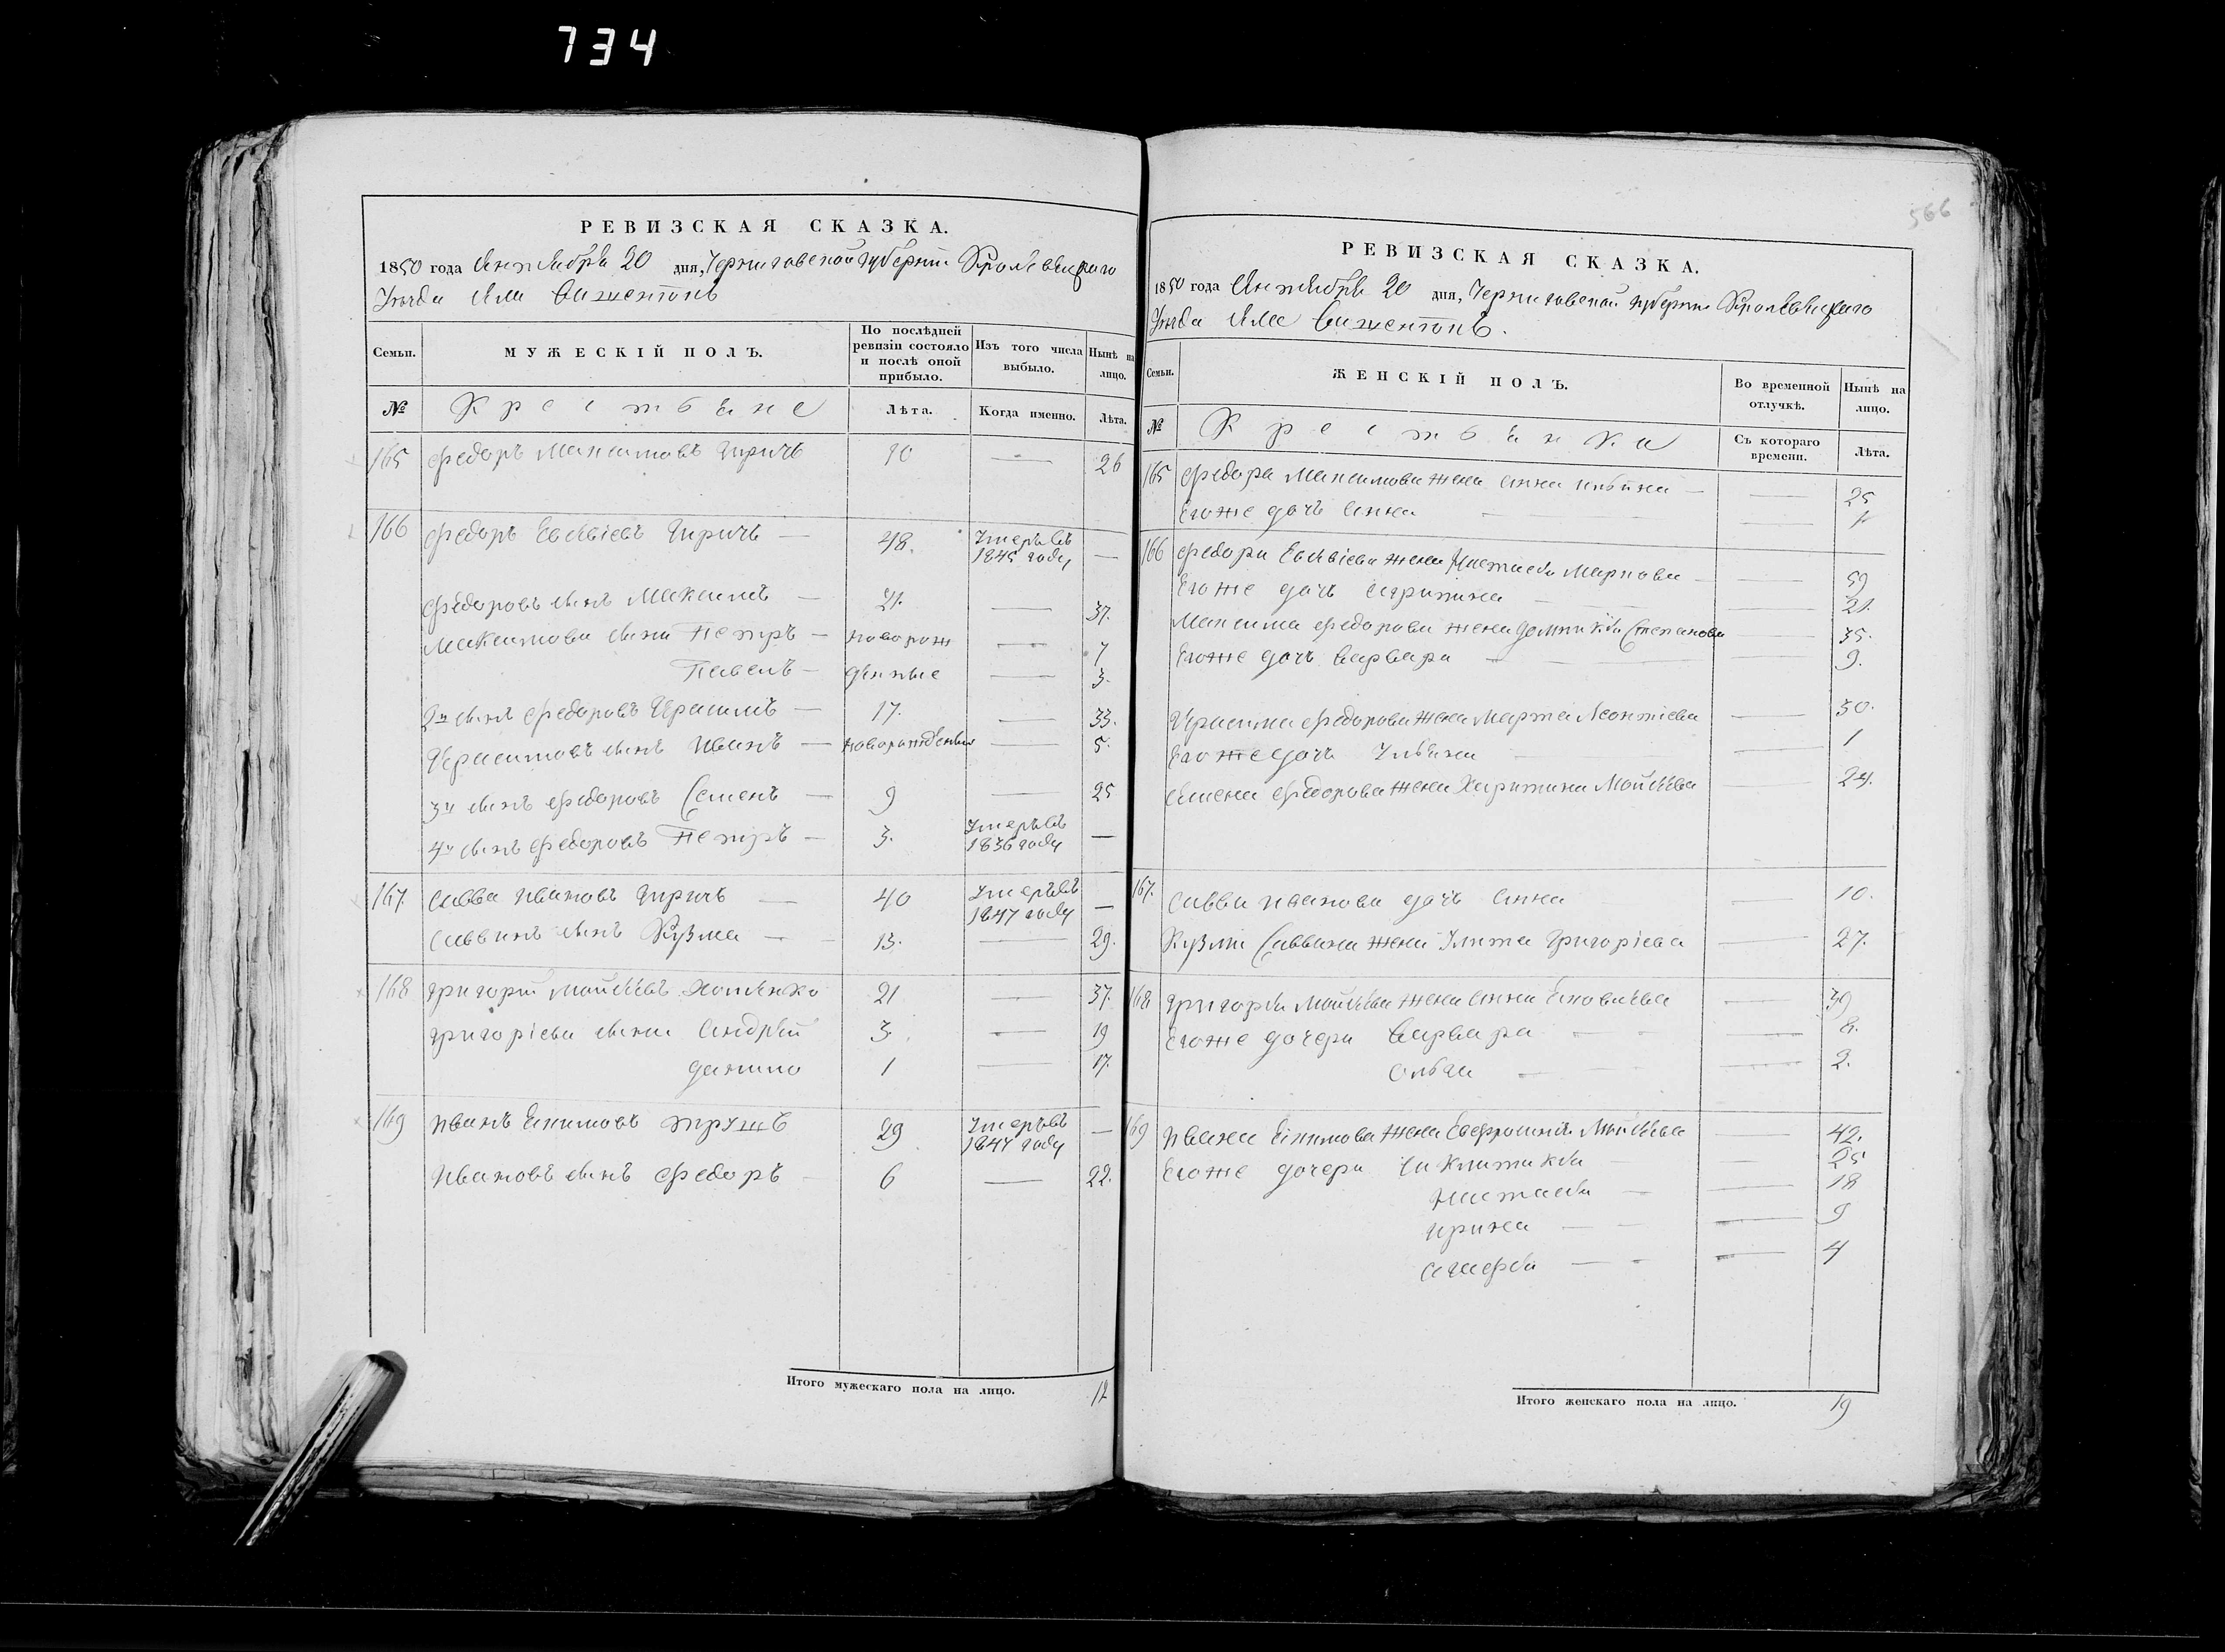 734
566
РЕВИЗСКАЯ СКАЗКА.
1850 года Октября 20 дня, Черниговской губернии Кролевецкого
Уезда
МУЖЕСКІЙ ПОЛЪ.
Семьи.
По послѣдней ревизіи состояло и послѣ оной прибыло.
Изъ того числа выбыло.
Нынѣ на лицо.
№
Крестьяне
Лѣта.
Когда именно.
Лѣта.
165 Федоръ Максимовъ 10 — 26
166 Федоръ Евсѣіевъ 48. Умеръ въ 1845 году —
Федоровъ сынъ Максимъ — 21. — 37.
Максимовы сыны Петръ — новорож — 7
Павелъ — денные — 3.
2й сынъ Федоровъ Герасимъ — 17. — 33.
Герасимовъ сынъ Иванъ — новорожденный — 5.
3й сынъ Федоровъ Семенъ — 9 — 25
4й сынъ Федоровъ Петръ — 3. Умеръ въ 1836 году —
167. Савва Ивановъ 40 Умеръ въ 1847 году —
Саввинъ сынъ Кузма — 13. — 29.
168 Григорій Мойсѣевъ Хоменко 21 — 37.
Григоріевы сыны Андрѣй 3. — 19
Данило 1 — 17.
169 Иванъ Екимовъ 29 Умеръ въ 1847 году —
Ивановъ сынъ Федоръ 6 — 22.
Итого мужескаго пола на лицо. 12
РЕВИЗСКАЯ СКАЗКА.
1850 года Октября 20 дня, Черниговской губернии Кролевецкого
Уезда
Семьи.
ЖЕНСКІЙ ПОЛЪ.
Во временной отлучкѣ.
Нынѣ на лицо.
№
Крестьянки
Съ котораго времени.
Лѣта.
165 Федора Максимова жена Анна — 25
Его же дочь Анна —
166 Федора Евсѣіева жена Настасья Маркова — 59
Его же дочь — 21.
Максима Федорова жена Домникія Степанова — 35.
Его же дочь Варвара — 9.
Герасима Федорова жена Марта Леонтіева — 30.
Его же дочь Ульяна — 1
Семена Федорова жена Харитина Мойсѣева — 24.
167. Саввы Иванова дочь Анна — 10.
Кузмы Саввина жена Улита Григоріева — 27.
168 Григорія Мойсѣева жена Анна — 39
Его же дочери Варвара — 8.
Ольга — 2.
169 Ивана Екимова жена Евфросинія Мойсѣева — 42.
Его же дочери — 25
Настасья — 18
Ирина — 9
Агафія — 4
Итого женскаго пола на лицо. 19